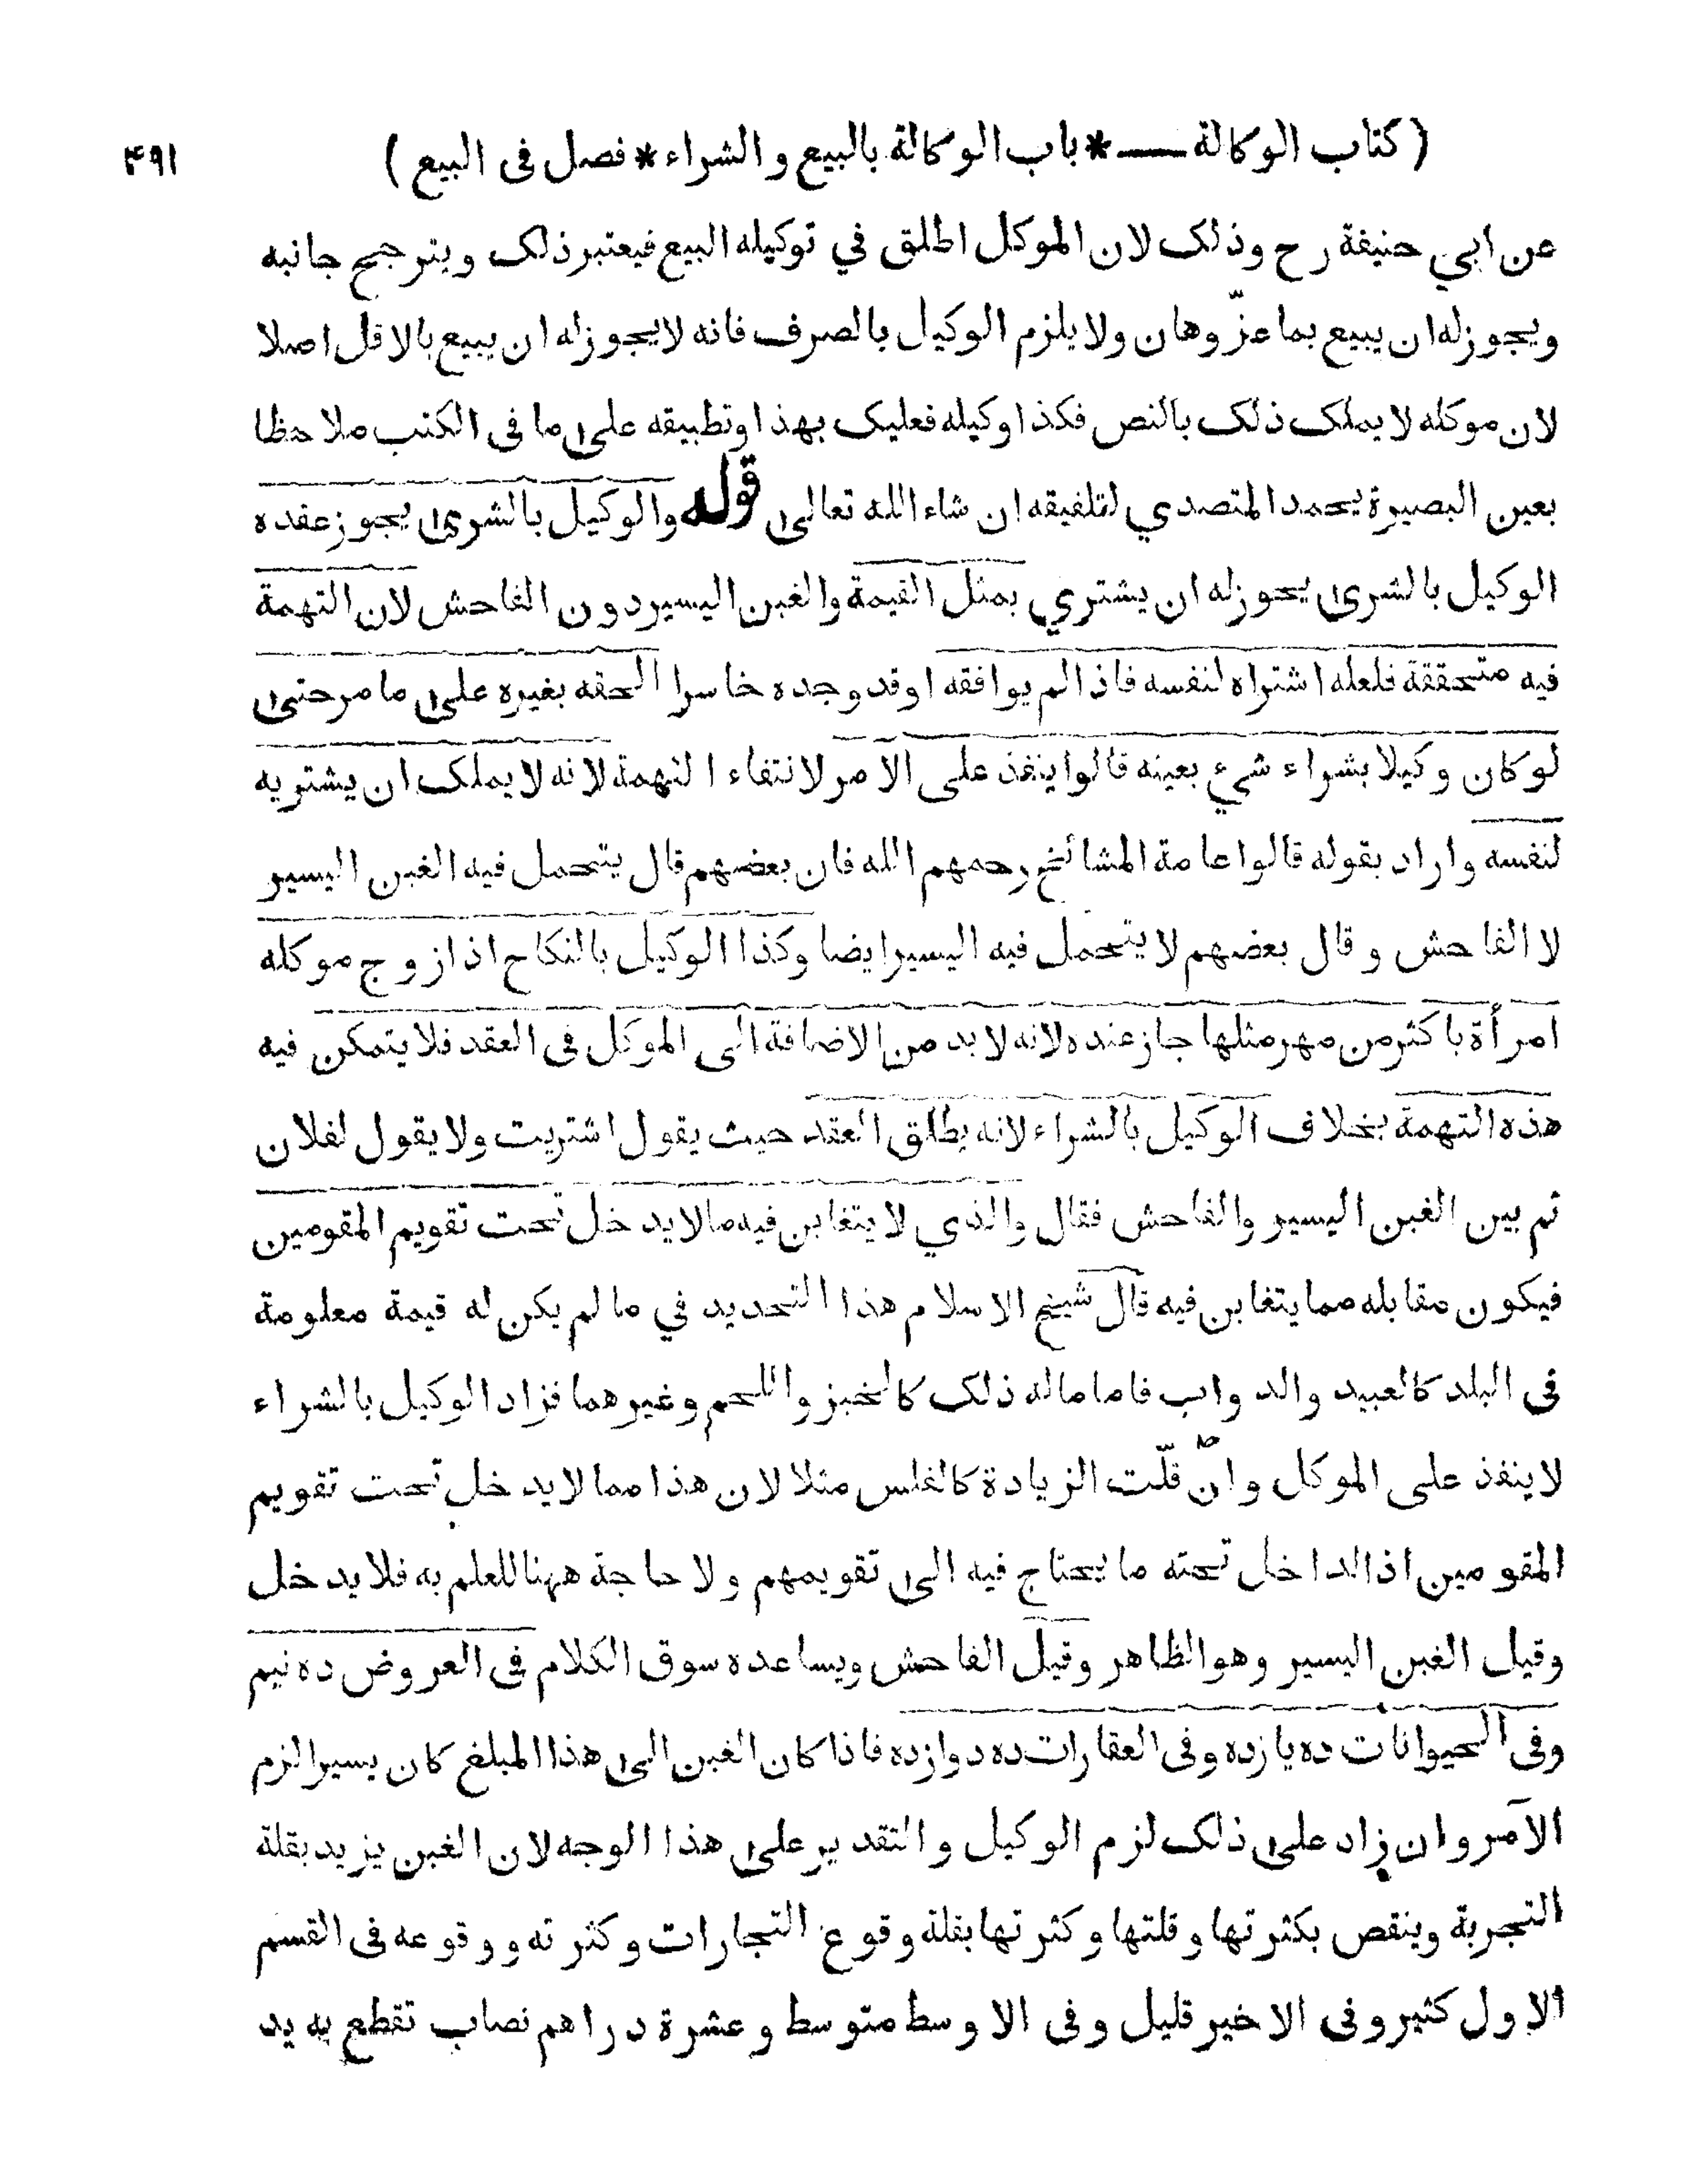 (كتاب الوكالة ـــ * باب الوكالة بالبيع والشراء * فصل فى البيع) ۴۹۱
عن ابي حنيفة رح وذلك لان الموكل اطلق في توكيله البيع فيعتبر ذلك ويترجح جانبه
ويجوز له ان يبيع بما عزّ وهان ولا يلزم الوكيل بالصرف فانه لا يجوز له ان يبيع بالاقل اصلا
لان موكله لا يملك ذلك بالنص فكذا وكيله فعليك بهذا وتطبيقه على ما فى الكتب ملاحظا
بعين البصيرة يحمد المتصدي لتلفيقه ان شاء الله تعالى قوله والوكيل بالشرى يجوز عقده
الوكيل بالشرى يجوز له ان يشتري بمثل القيمة والغبن اليسير دون الفاحش لان التهمة
فيه متحققة فلعله اشتراه لنفسه فاذا لم يوافقه او قد وجده خاسرا الحقه بغيره على ما مر حتى
لو كان وكيلا بشراء شيء بعينه قالوا ينفذ على الآمر لانتفاء التهمة لانه لا يملك ان يشتريه
لنفسه واراد بقوله قالوا عامة المشائخ رحمهم الله فان بعضهم قال يتحمل فيه الغبن اليسير
لا الفاحش وقال بعضهم لا يتحمل فيه اليسير ايضا وكذا الوكيل بالنكاح اذا زوج موكله
امرأة باكثر من مهر مثلها جاز عنده لانه لا بد من الاضافة الى الموكل فى العقد فلا يتمكن فيه
هذه التهمة بخلاف الوكيل بالشراء لانه يطلق العقد حيث يقول اشتريت ولا يقول لفلان
ثم بين الغبن اليسير والفاحش فقال والذي لا يتغابن فيه ما لا يدخل تحت تقويم المقومين
فيكون مقابله مما يتغابن فيه قال شيخ الاسلام هذا التحديد في ما لم يكن له قيمة معلومة
فى البلد كالعبيد والدواب فاما ما له ذلك كالخبز واللحم وغيرهما فزاد الوكيل بالشراء
لا ينفذ على الموكل وان قلّت الزيادة كالفلس مثلا لان هذا مما لا يدخل تحت تقويم
المقومين اذ الداخل تحته ما يحتاج فيه الى تقويمهم ولا حاجة ههنا للعلم به فلا يدخل
وقيل الغبن اليسير وهو الظاهر وقيل الفاحش ويساعده سوق الكلام فى العروض ده نيم
وفى الحيوانات ده يازده وفى العقارات ده دوازده فاذا كان الغبن الى هذا المبلغ كان يسيرا لزم
الآمر وان زاد على ذلك لزم الوكيل والتقدير على هذا الوجه لان الغبن يزيد بقلة
التجربة وينقص بكثرتها وقلتها وكثرتها بقلة وقوع التجارات وكثرته ووقوعه فى القسم
الاول كثير وفى الاخير قليل وفى الاوسط متوسط وعشرة دراهم نصاب تقطع به يد